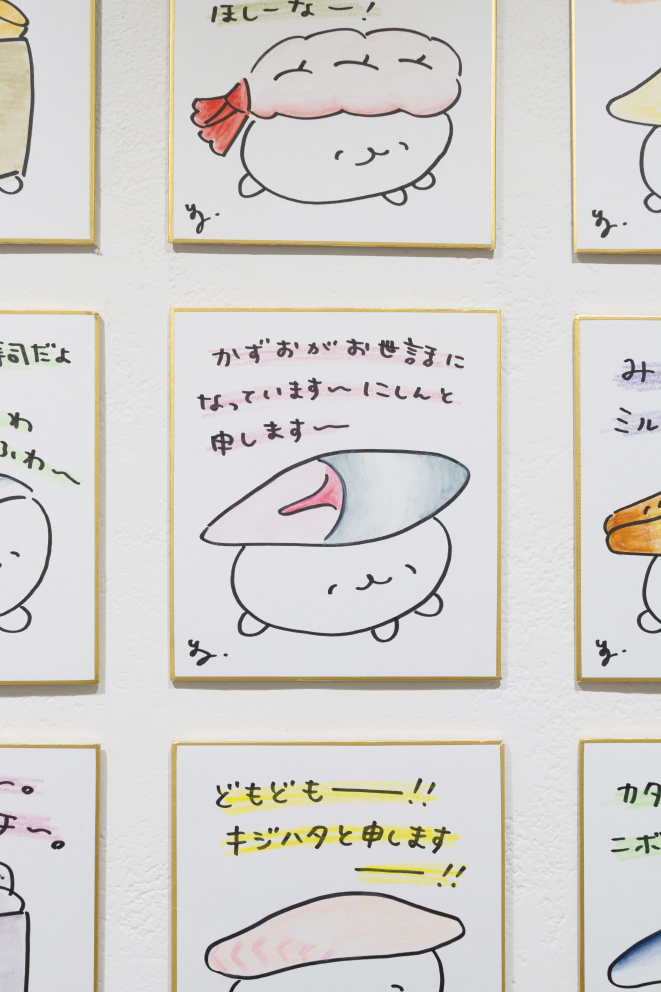 ほしーなー!
寿司だよ
わ
ふわ〜
かずおがお世話に
なっています〜 にしんと
申します〜
み
ミル
〜。
よ〜。
どもども――!!
キジハタと申します
――!!
カタ
ニボ